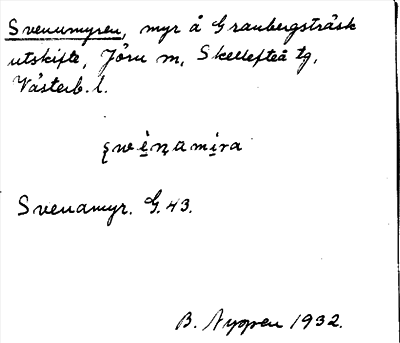 Svenamyren, myr å Granbergsträsk
utskifte, Jörn m, Skellefteå tg,
Västerb. l.
Svenamyr. G. 43.
B. Nygren 1932.